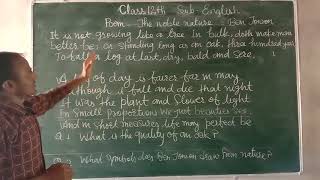 Class 12th Sub- English
Poem - The noble nature - Ben Jonson
It is not growing like a tree In bulk, doth make man
better be; or standing long an oak, three hundred year
To fall a log at last, dry, bald and sere,
A of day is fairer far in may
Although it fall and die that night
It was the plant and flower of light
In small proportions we just beauties
And in short measures life may perfect be
Q.1 What is the quality of an oak?
Q.2 What symbols does Ben Jonson draw from nature?